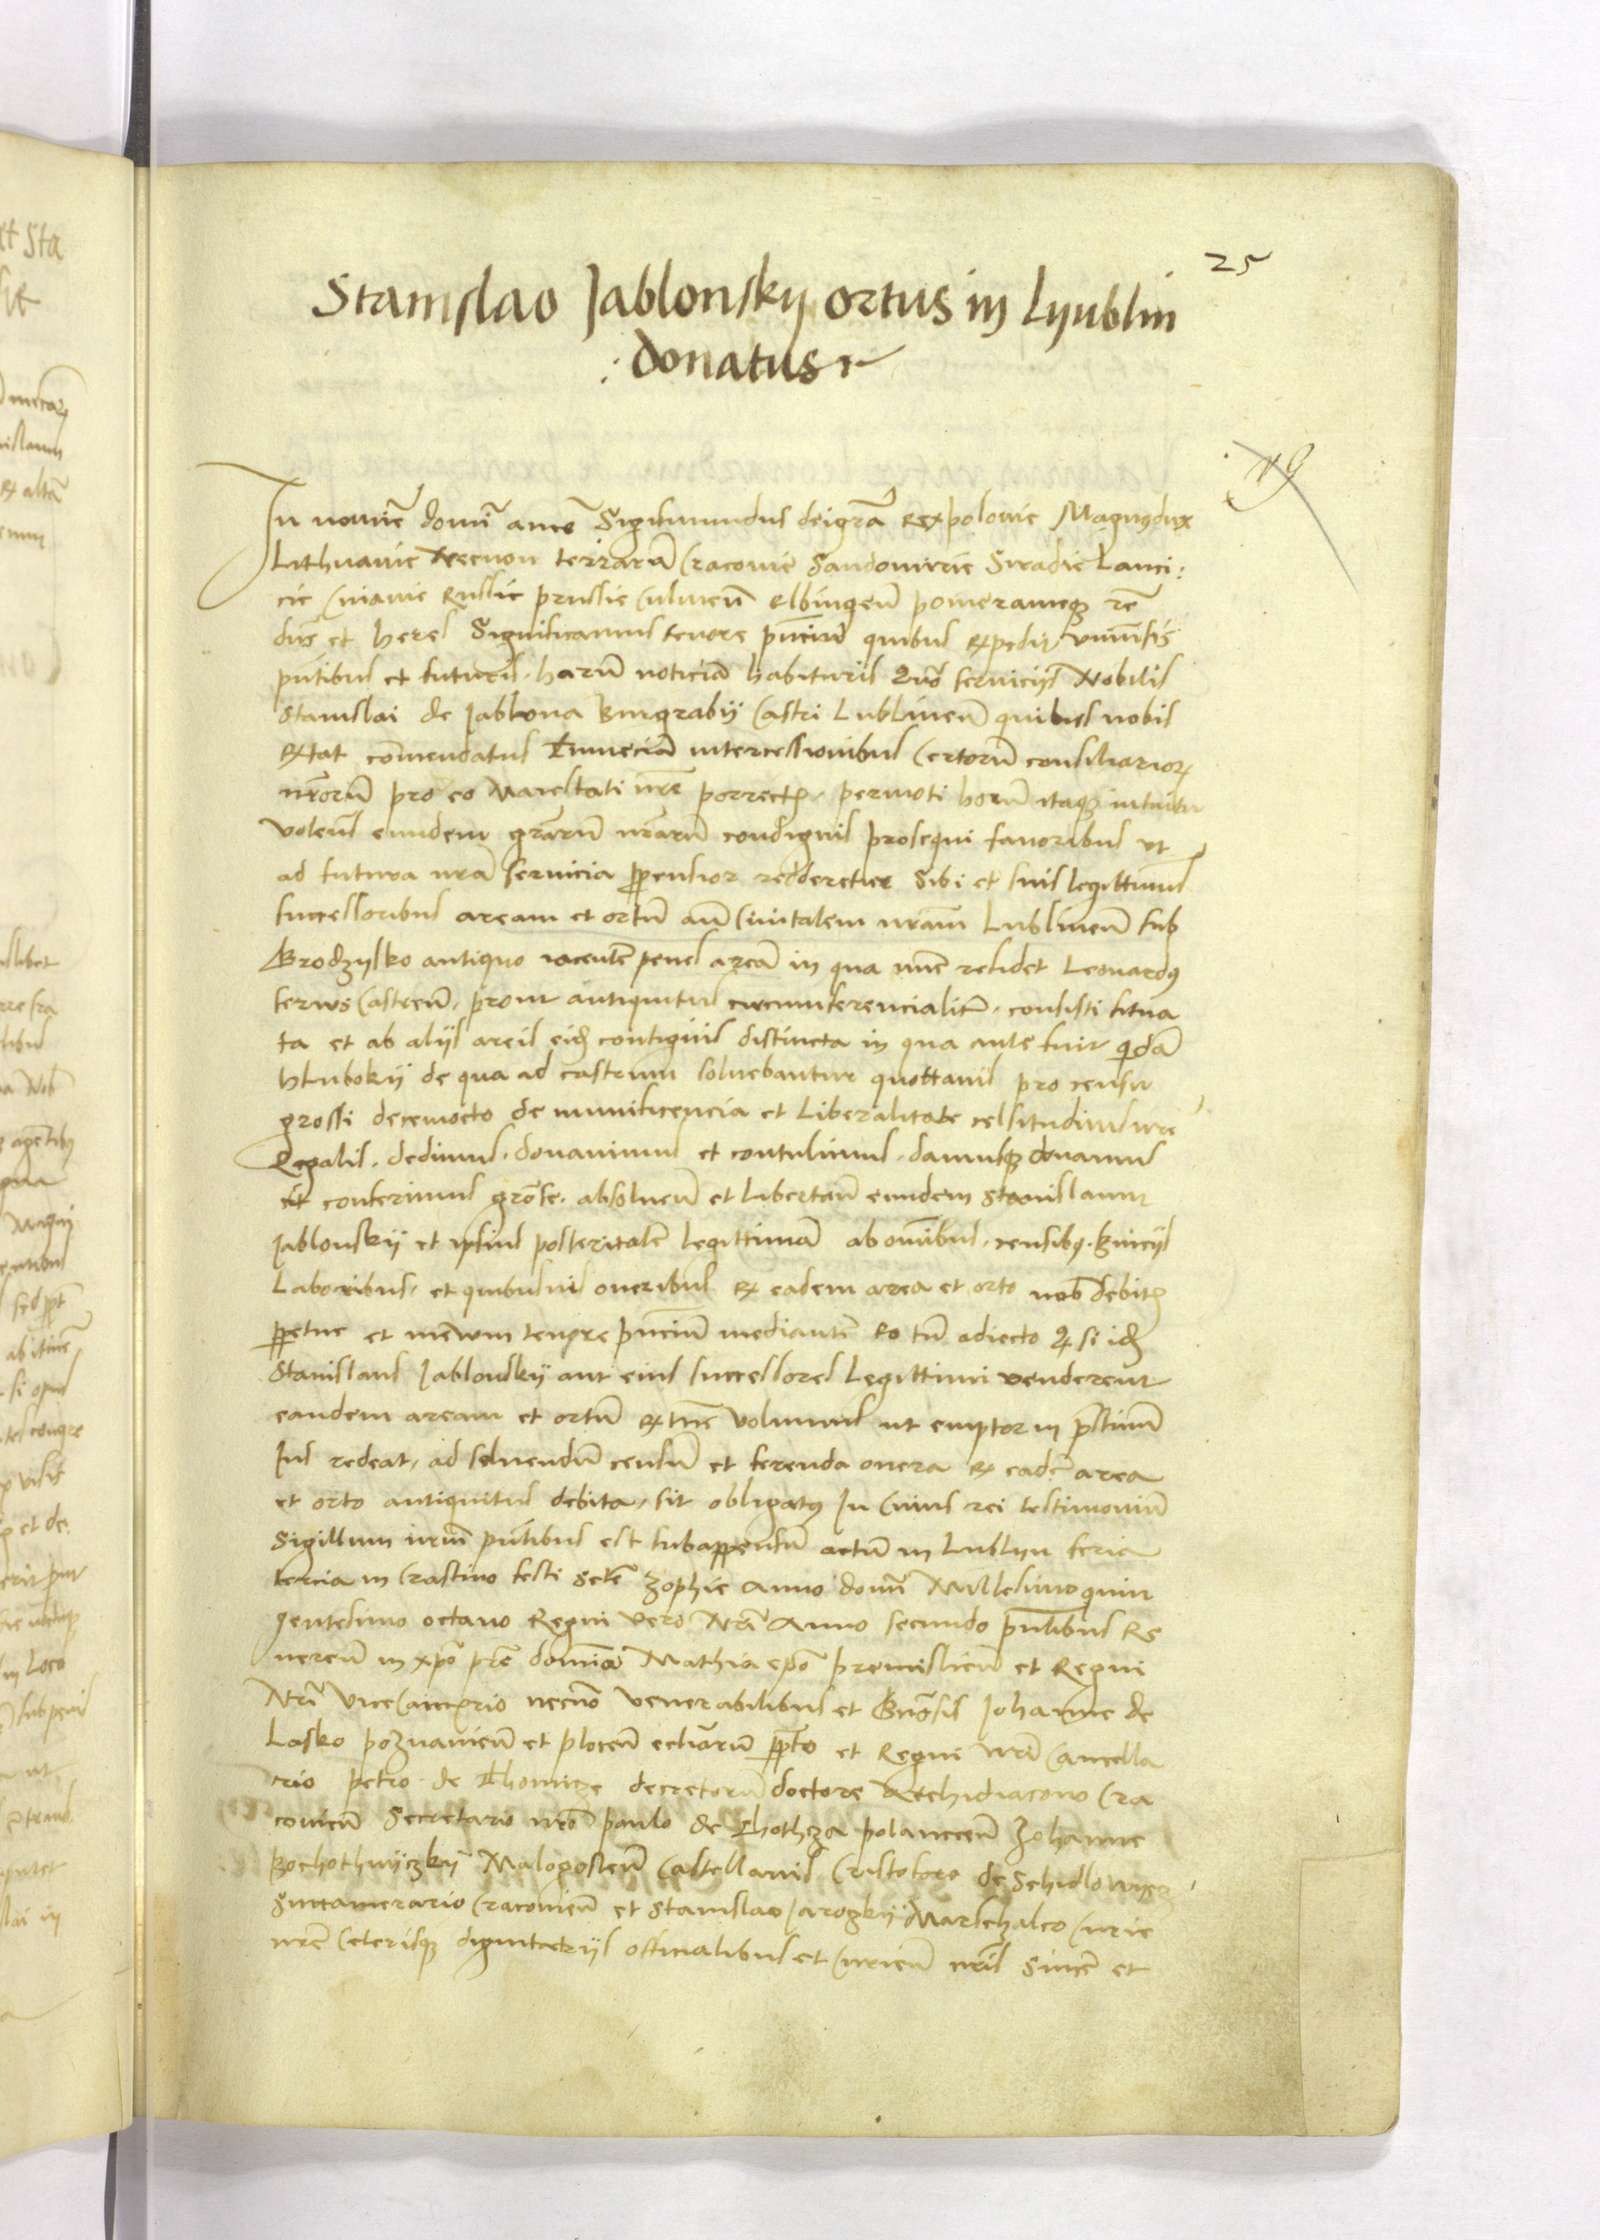 25
Stanislao Jablonsky ortus in Lyublin
: donatus
In nomie domi ame Sigismundus dei gra Rex polonie Magnus dux
Lithuanie Necnon terrarum Cracovie Sandomirie Siradie Lanci:
cie Cuiavie Russie prussie Culmen Elbingen pomeranieq
dns et heres Significamus tenore pncium quibus expedit univsis
pntibus et futuris harum noticiam habituris Quo serviciis Nobilis
Stanislai de Jablona Burgrabii Castri Lublinen quibus nobis
extat comendatus Tum eciam intercessionibus Certorum consiliarior
nrorum pro eo Maiestati nre porrectis permoti horum itaq intuitu
volens eundem grarum nrarum condignis prosequi favoribus ut
ad futura nra servicia ppensior redderetur Sibi et suis legittimis
successoribus aream et ortum an Civitatem nram Lublinen sub
Grodzysko antiquo iacentem penes aream in qua nunc residet Leonardus
servus Castren prout antiquitus circumferencialiter consisti situa
ta et ab aliis areis eid contiguis distincta in qua ante fuit quidam
Hlubokii de qua ad castrum solvebantur quottanis pro censu
grossi decemocto de munificencia et Liberalitate celsitudinis nre
Regalis dedimus donavimus et contulimus damusq donamus
et conferimus grose absolven et Libertan eundem Stanislaum
Jablonskii et ipsius posteritatem legittimam ab omibus censibus
Laboribus et quibusvis oneribus ex eadem area et orto nob debitis
ppetue et in evum tenore pncium mediante Eo tn adiecto q si idem
Stanislaus Jablonskii aut eius successores Legittimi venderent
eandem aream et ortum extunc volumus ut emptor in pstinum
Ius redeat ad solvendum censum et ferenda onera ex eadem area
et orto antiquitus debita sit obligatus In Cuius rei testimonium
Sigillum nrum pntibus est subappensum actum in Lublyn feria
tercia in Crastino festi scte Zophie Anno domi Millesimo quin
gentesimo octavo Regni vero Nri Anno secundo pntibus Re
veren in xpo pre domino Mathia epo premislien et Regni
Nri Vicecancrio necno venerabilibus et Gnosis Johanne de
Lasko poznanien et plocen ecliarum ppto et Regni nri Cancella
rio petro de Thomicze decretorum doctore Archidiacono Cra
covien Secretario nro paulo de Chothcza polanecen Johanne
Bochothniczkii Malogosten Castellanis Cristoforo de Schidlowyecz
Succamerario Cracovien et Stanislao Jaroczkii Marschalco Curie
nre Ceterisq dignitariis officialibus et Curien nris Sincere et